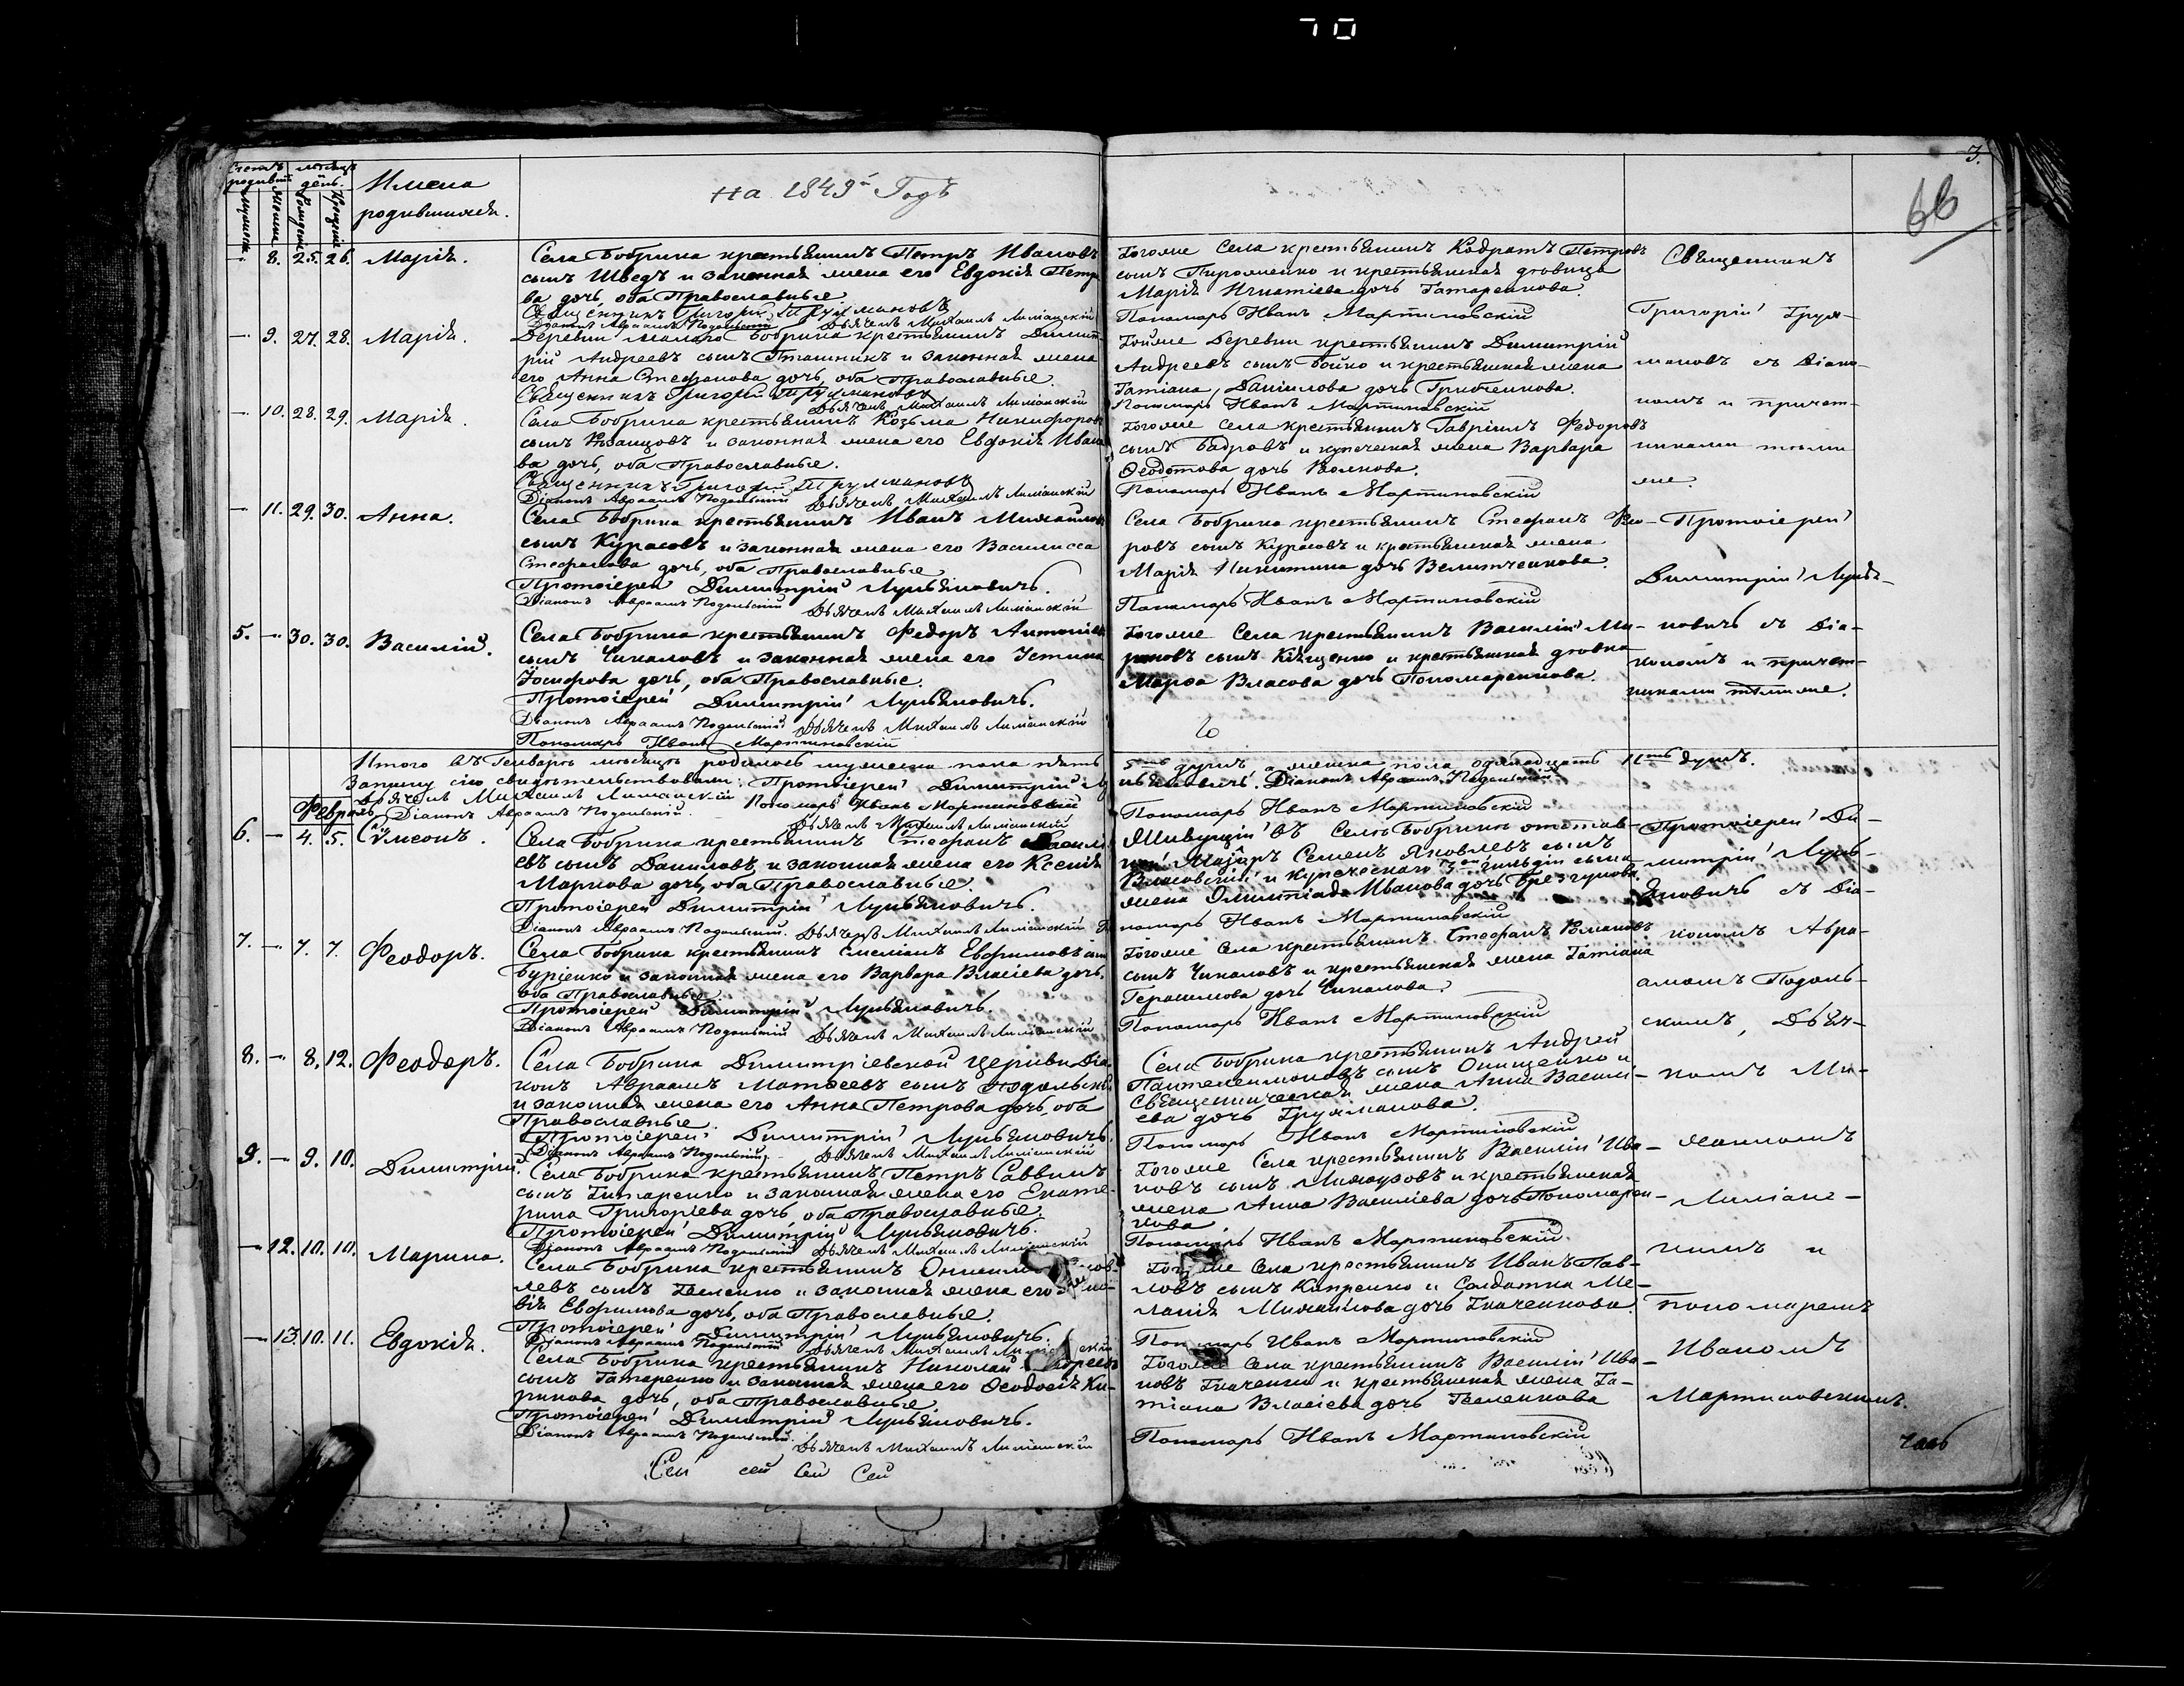 70
3.
66
Счетъ родивш
мѣсяцъ и день.
Имена
родившихся.
На 1849й Годъ
— 8. 25. 26. Марія.
Села Бобрика крестьянинъ Петръ Ивановъ
сынъ Шведъ и законная жена его Евдокія Петро
ва дочь, оба Православные.
Священникъ Григорій Трухмановъ
Діаконъ Авраамъ Подольскій Дьячекъ Михаилъ Лиманскій
Тогоже Села крестьянинъ Кодратъ Петровъ
сынъ Пироженко и крестьянская дѣвица
Марія Игнатіева дочь Татаренкова.
Пономарь Иванъ Мартиновскій
Священникъ
Григорій Трух-
мановъ съ Діако-
номъ и причет-
никами тѣми
же.
— 9. 27. 28. Марія.
Деревни Малаго Бобрика крестьянинъ Димит
рій Андреевъ сынъ Пташникъ и законная жена
его Анна Стефанова дочь, оба Православные.
Священникъ Григорій Трухмановъ
Дьячекъ Михаилъ Лиманскій
Тойже Деревни крестьянинъ Димитрій
Андреевъ сынъ Бойко и крестьянская жена
Татіана Даніилова дочь Гребченкова.
Пономарь Иванъ Мартиновскій
— 10. 28. 29. Марія.
Села Бобрика крестьянинъ Козьма Никифоровъ
сынъ и законная жена его Евдокія Ивано
ва дочь, оба Православные.
Священникъ Григорій Трухмановъ
Діаконъ Авраамъ Подольскій Дьячекъ Михаилъ Лиманскій
Тогоже Села крестьянинъ Гавріилъ Федоровъ
сынъ Бадровъ и купеческая жена Варвара
Ѳеодотова дочь Волкова.
Пономарь Иванъ Мартиновскій
— 11. 29. 30. Анна.
Села Бобрика крестьянинъ Иванъ Михайловъ
сынъ Курасовъ и законная жена его Василисса
Стефанова дочь, оба Православные
Протоіерей Димитрій Лукьяновичь.
Діаконъ Авраамъ Подольскій Дьячекъ Михаилъ Лиманскій
Села Бобрика крестьянинъ Стефанъ Фео-
ровъ сынъ Курасовъ и крестьянская жена
Марія Никитина дочь Велитченкова.
Пономарь Иванъ Мартиновскій
Протоіерей
Димитрій Лукья-
новичь съ Діа-
кономъ и причет-
никами тѣмиже.
5. — 30. 30. Василій.
Села Бобрика крестьянинъ Федоръ Антоніев
сынъ Чикаловъ и законная жена его Устина
Іосифова дочь, оба Православные.
Протоіерей Димитрій Лукьяновичь.
Діаконъ Авраамъ Подольскій Дьячекъ Михаилъ Лиманскій
Пономарь Иванъ Мартиновскій
Тогоже Села крестьянинъ Василій Ми-
роновъ сынъ Кіященко и крестьянская дѣвка
Марѳа Власова дочь Пономаренкова.
Итого въ Генварѣ мѣсяцѣ родилось мужеска пола пять 5ть душъ, а женска пола одинадцать 11ть душъ.
Запись сію свидѣтельствовали: Протоіерей Димитрій Лукьяновичь. Діаконъ Авраамъ Подольскій
Дьячекъ Михаилъ Лиманскій Пономарь Иванъ Мартиновскій
Февраль
Діаконъ Авраамъ Подольскій. Дьячекъ Михаилъ Лиманскій
Пономарь Иванъ Мартиновскій
6. — 4. 5. Сумеонъ.
Села Бобрика крестьянинъ Стефанъ Василі
евъ сынъ Даниловъ и законная жена его Ксенія
Маркова дочь, оба Православные.
Протоіерей Димитрій Лукьяновичь.
Діаконъ Авраамъ Подольскій. Дьячекъ Михаилъ Лиманскій
Живущій въ Селѣ Бобрикѣ отстав-
ной Маіоръ Семенъ Яковлевъ сынъ
Власовскій и купеческаго 3ей гильдіи сына
жена Олимпіада Иванова дочь Брезгунова.
Пономарь Иванъ Мартиновскій
Протоіерей Ди-
митрій Лукь-
яновичь съ Діа-
кономъ Авра-
амомъ Подоль-
скимъ, Дьяч-
комъ Ми-
хаиломъ
Лиманс-
кимъ и
пономаремъ
Иваномъ
Мартиновскимъ.
7. — 7. 7. Феодоръ.
Села Бобрика крестьянинъ Емеліанъ Евфимовъ сын
Буріенко и законная жена его Варвара Власіева дочь,
оба Православные.
Протоіерей Димитрій Лукьяновичь.
Діаконъ Авраамъ Подольскій Дьячекъ Михаилъ Лиманскій
Тогоже Села крестьянинъ Стефанъ Романовъ
сынъ Чикаловъ и крестьянская жена Татіана
Герасимова дочь Чикалова.
Пономарь Иванъ Мартиновскій
8. — 8. 12. Феодоръ.
Села Бобрика Димитріевской церкви Діа
конъ Авраамъ Матѳеевъ сынъ Подольскій
и законная жена его Анна Петрова дочь, оба
Православные.
Протоіерей Димитрій Лукьяновичь.
Діаконъ Авраамъ Подольскій. Дьячекъ Михаилъ Лиманскій
Села Бобрика крестьянинъ Андрей
Пантелеимоновъ сынъ Онищенко и
Священническая жена Анна Василі-
ева дочь Трухманова.
Пономарь Иванъ Мартиновскій
9. — 9. 10. Димитрій.
Села Бобрика крестьянинъ Петръ Саввинъ
сынъ Титаренко и законная жена его Екате-
рина Григоріева дочь, оба Православные.
Протоіерей Димитрій Лукьяновичь.
Діаконъ Авраамъ Подольскій Дьячекъ Михаилъ Лиманскій
Тогоже Села крестьянинъ Василій Ива-
новъ сынъ и крестьянская
жена Анна Василіева дочь Пономарен-
кова
Пономарь Иванъ Мартиновскій.
— 12. 10. 10. Марина.
Села Бобрика крестьянинъ
левъ сынъ Теленко и законная жена его
вія Евфимова дочь, оба Православные.
Протоіерей Димитрій Лукьяновичь.
Діаконъ Авраамъ Подольскій Дьячекъ Михаилъ
Тогоже Села крестьянинъ Иванъ Пав-
ловъ сынъ Купренко и Солдатка Ме-
ланія Михайлова дочь Ткаченкова.
Пономарь Иванъ Мартиновскій
— 13. 10. 11. Евдокія.
Села Бобрика крестьянинъ Николай Андреевъ
сынъ Татаренко и законная жена его Ѳеодосія Ки-
рикова дочь, оба Православные.
Протоіерей Димитрій Лукьяновичь.
Діаконъ Авраамъ Подольскій. Дьячекъ Михаилъ Лиманскій
Тогоже Села крестьянинъ Василій Ива-
новъ Ткаченко и крестьянская жена Та-
тіана Власіева дочь Теленкова
Пономарь Иванъ Мартиновскій
Сей сей Сей Сей